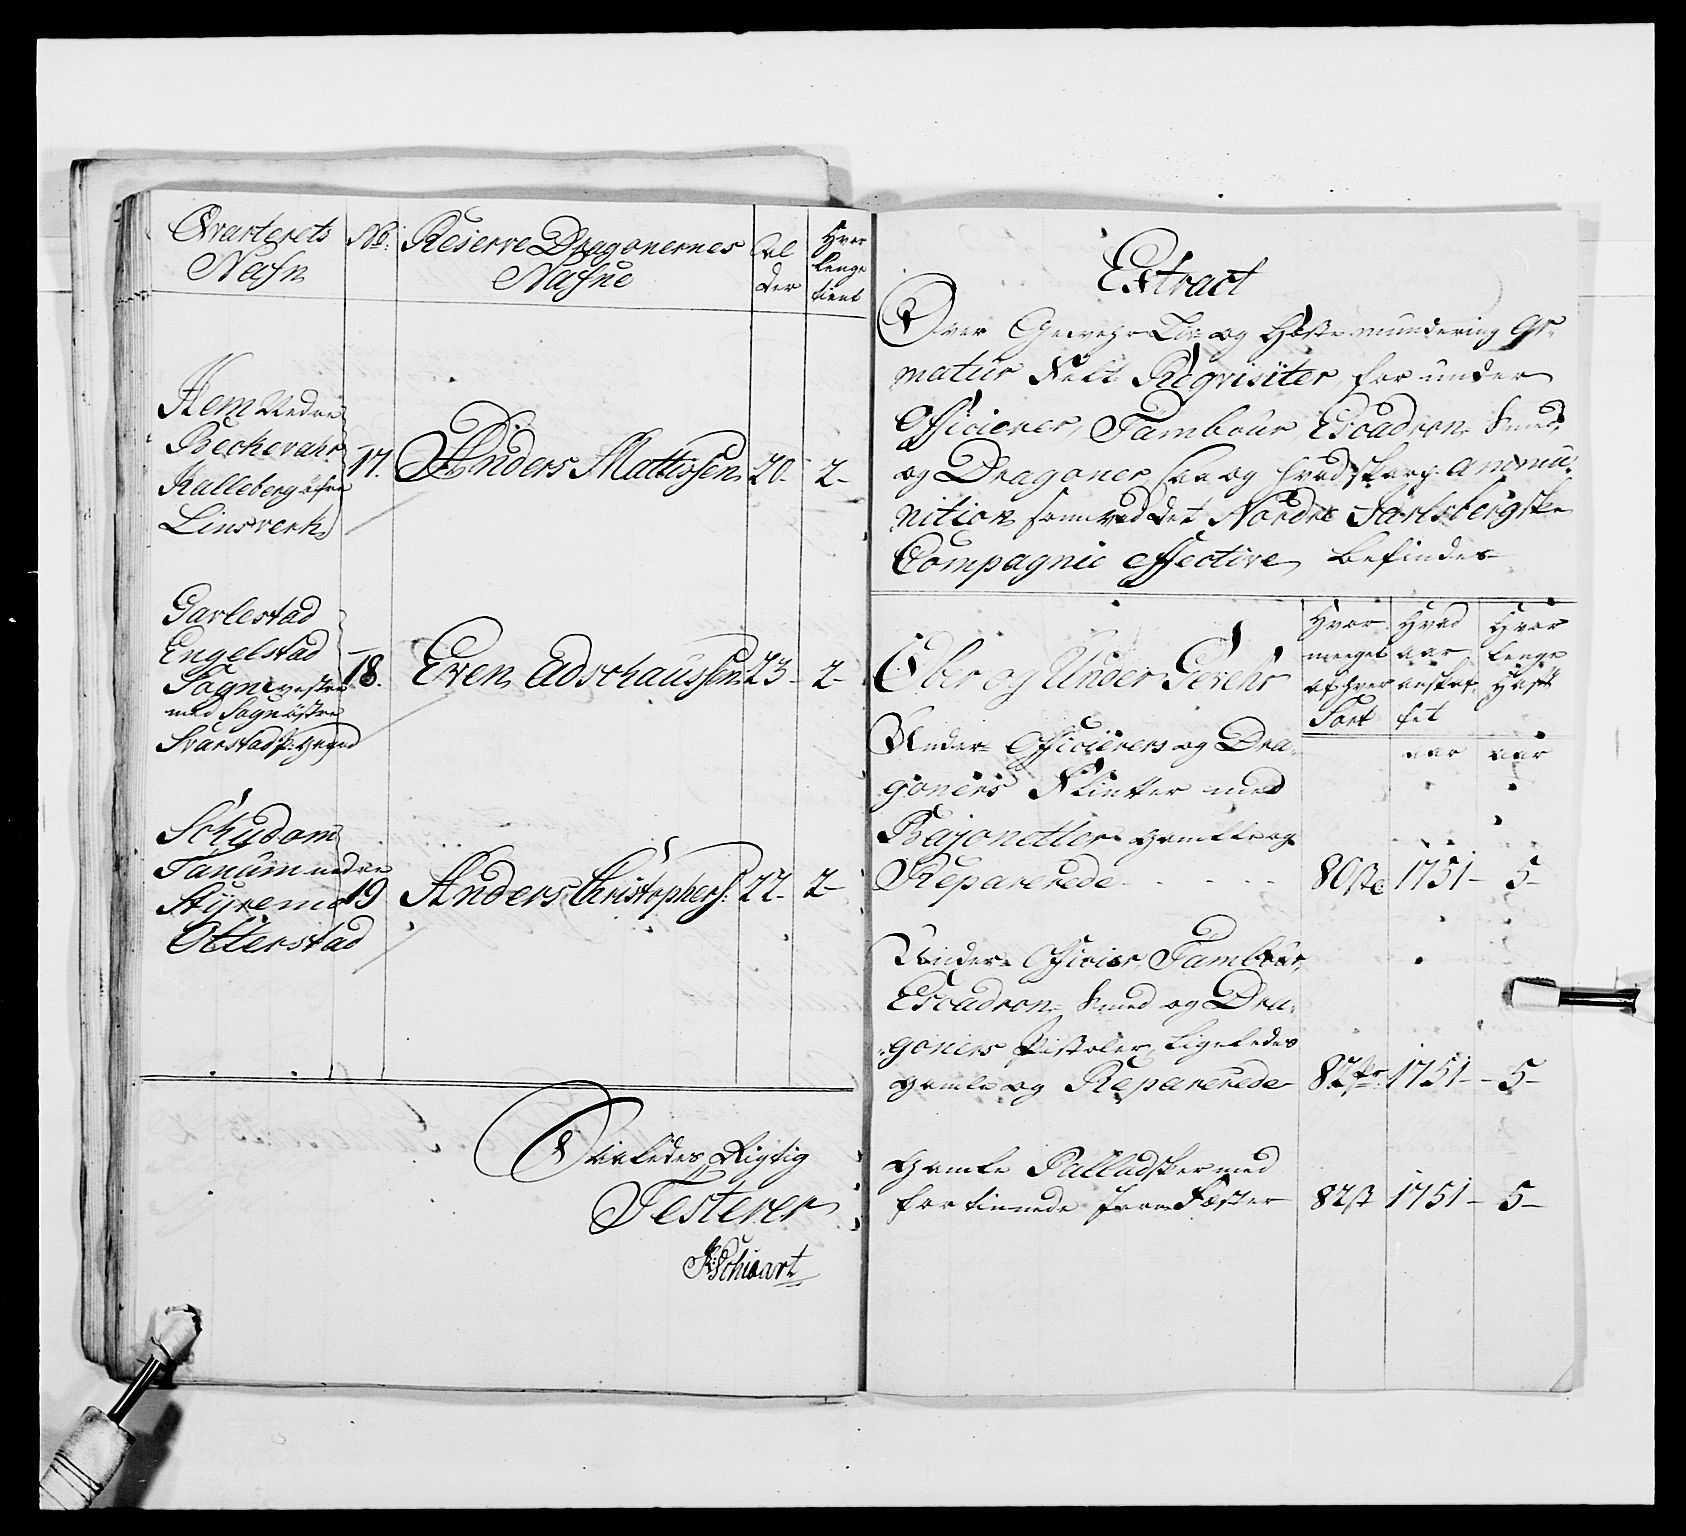 Qvarterets
Nafn
No:
Reserve Dragonernes
Nafne
Al
der
Hvor
lenge
tient
Hem Nedre
Beckevahr
Kalleberg øfre
Linsverk
17.
Anders Mattissen
20-
2-
Garlestad
Engelstad
Sogn vestre
med Sogn østre
Svarstad
18.
Even Adsthaussen
23-
2-
Schydom
Tanum nedre
Styremo
Otterstad
19
Anders Christophers:
22-
2-
Saaledes Rigtig
Testerer
Schwart
Extract
Over Gewehr Lif- og Hæste mundering Ar-
matur Felt Reqvisiter, for under
Officierer, Tambour Escadron Smed,
og Dragoner saa og hvad skarp Ammu-
nition som ved det Nordre Jarlsbergske
Compagnie effective befindes
Ober og Under Gevehr
Hvor
meeget
af hver
Sort
Hvad
aar
anskaf-
fet
aar
Hvor
lenge
Hafft
aar
Under Officierers og Dra-
goners Flinter med
Bajonetter gamle og
Reparerede - - - -
80 st
1751-
5-
Under Officier, Tambour,
Escadron Smed og Dra-
goners Pistoler, ligeledes
gamle og Reparerede
82 Pr.
1751-
5-
Gamle Palladsker med
fortinnede Fæster
82 st
1751-
5-